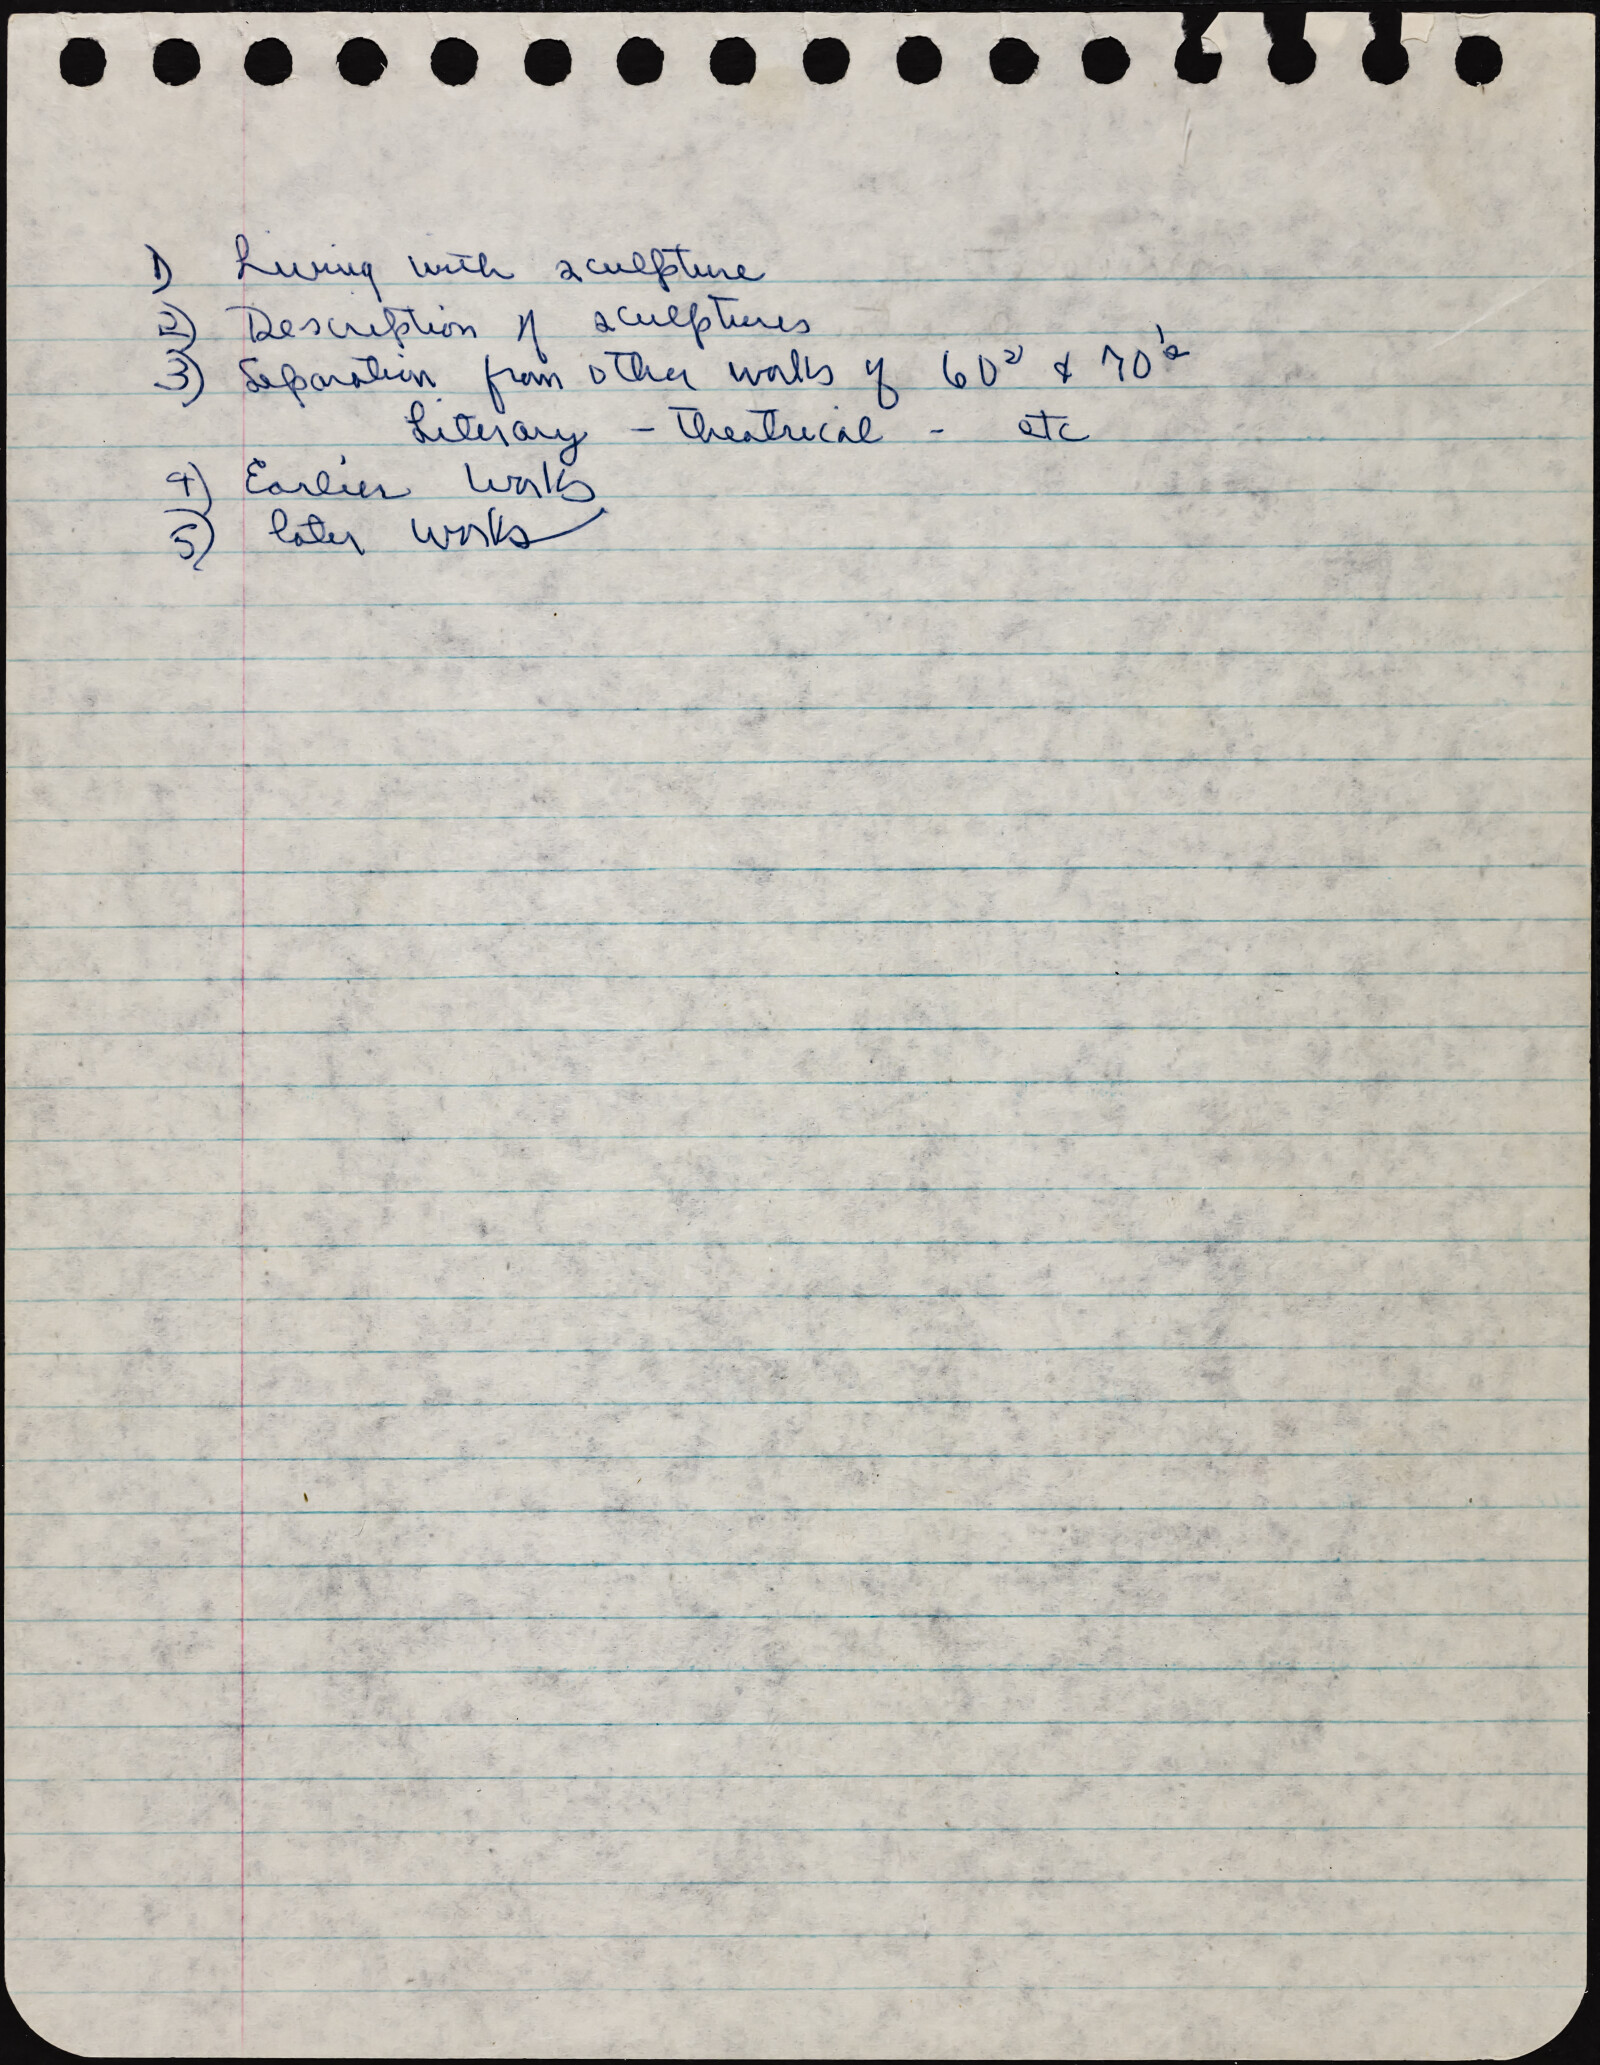 1) Living with sculpture
2) Description of sculptures
3) Separation from other works of 60s & 70's
Literary - theatrical - etc
4) Earlier works
5) later works